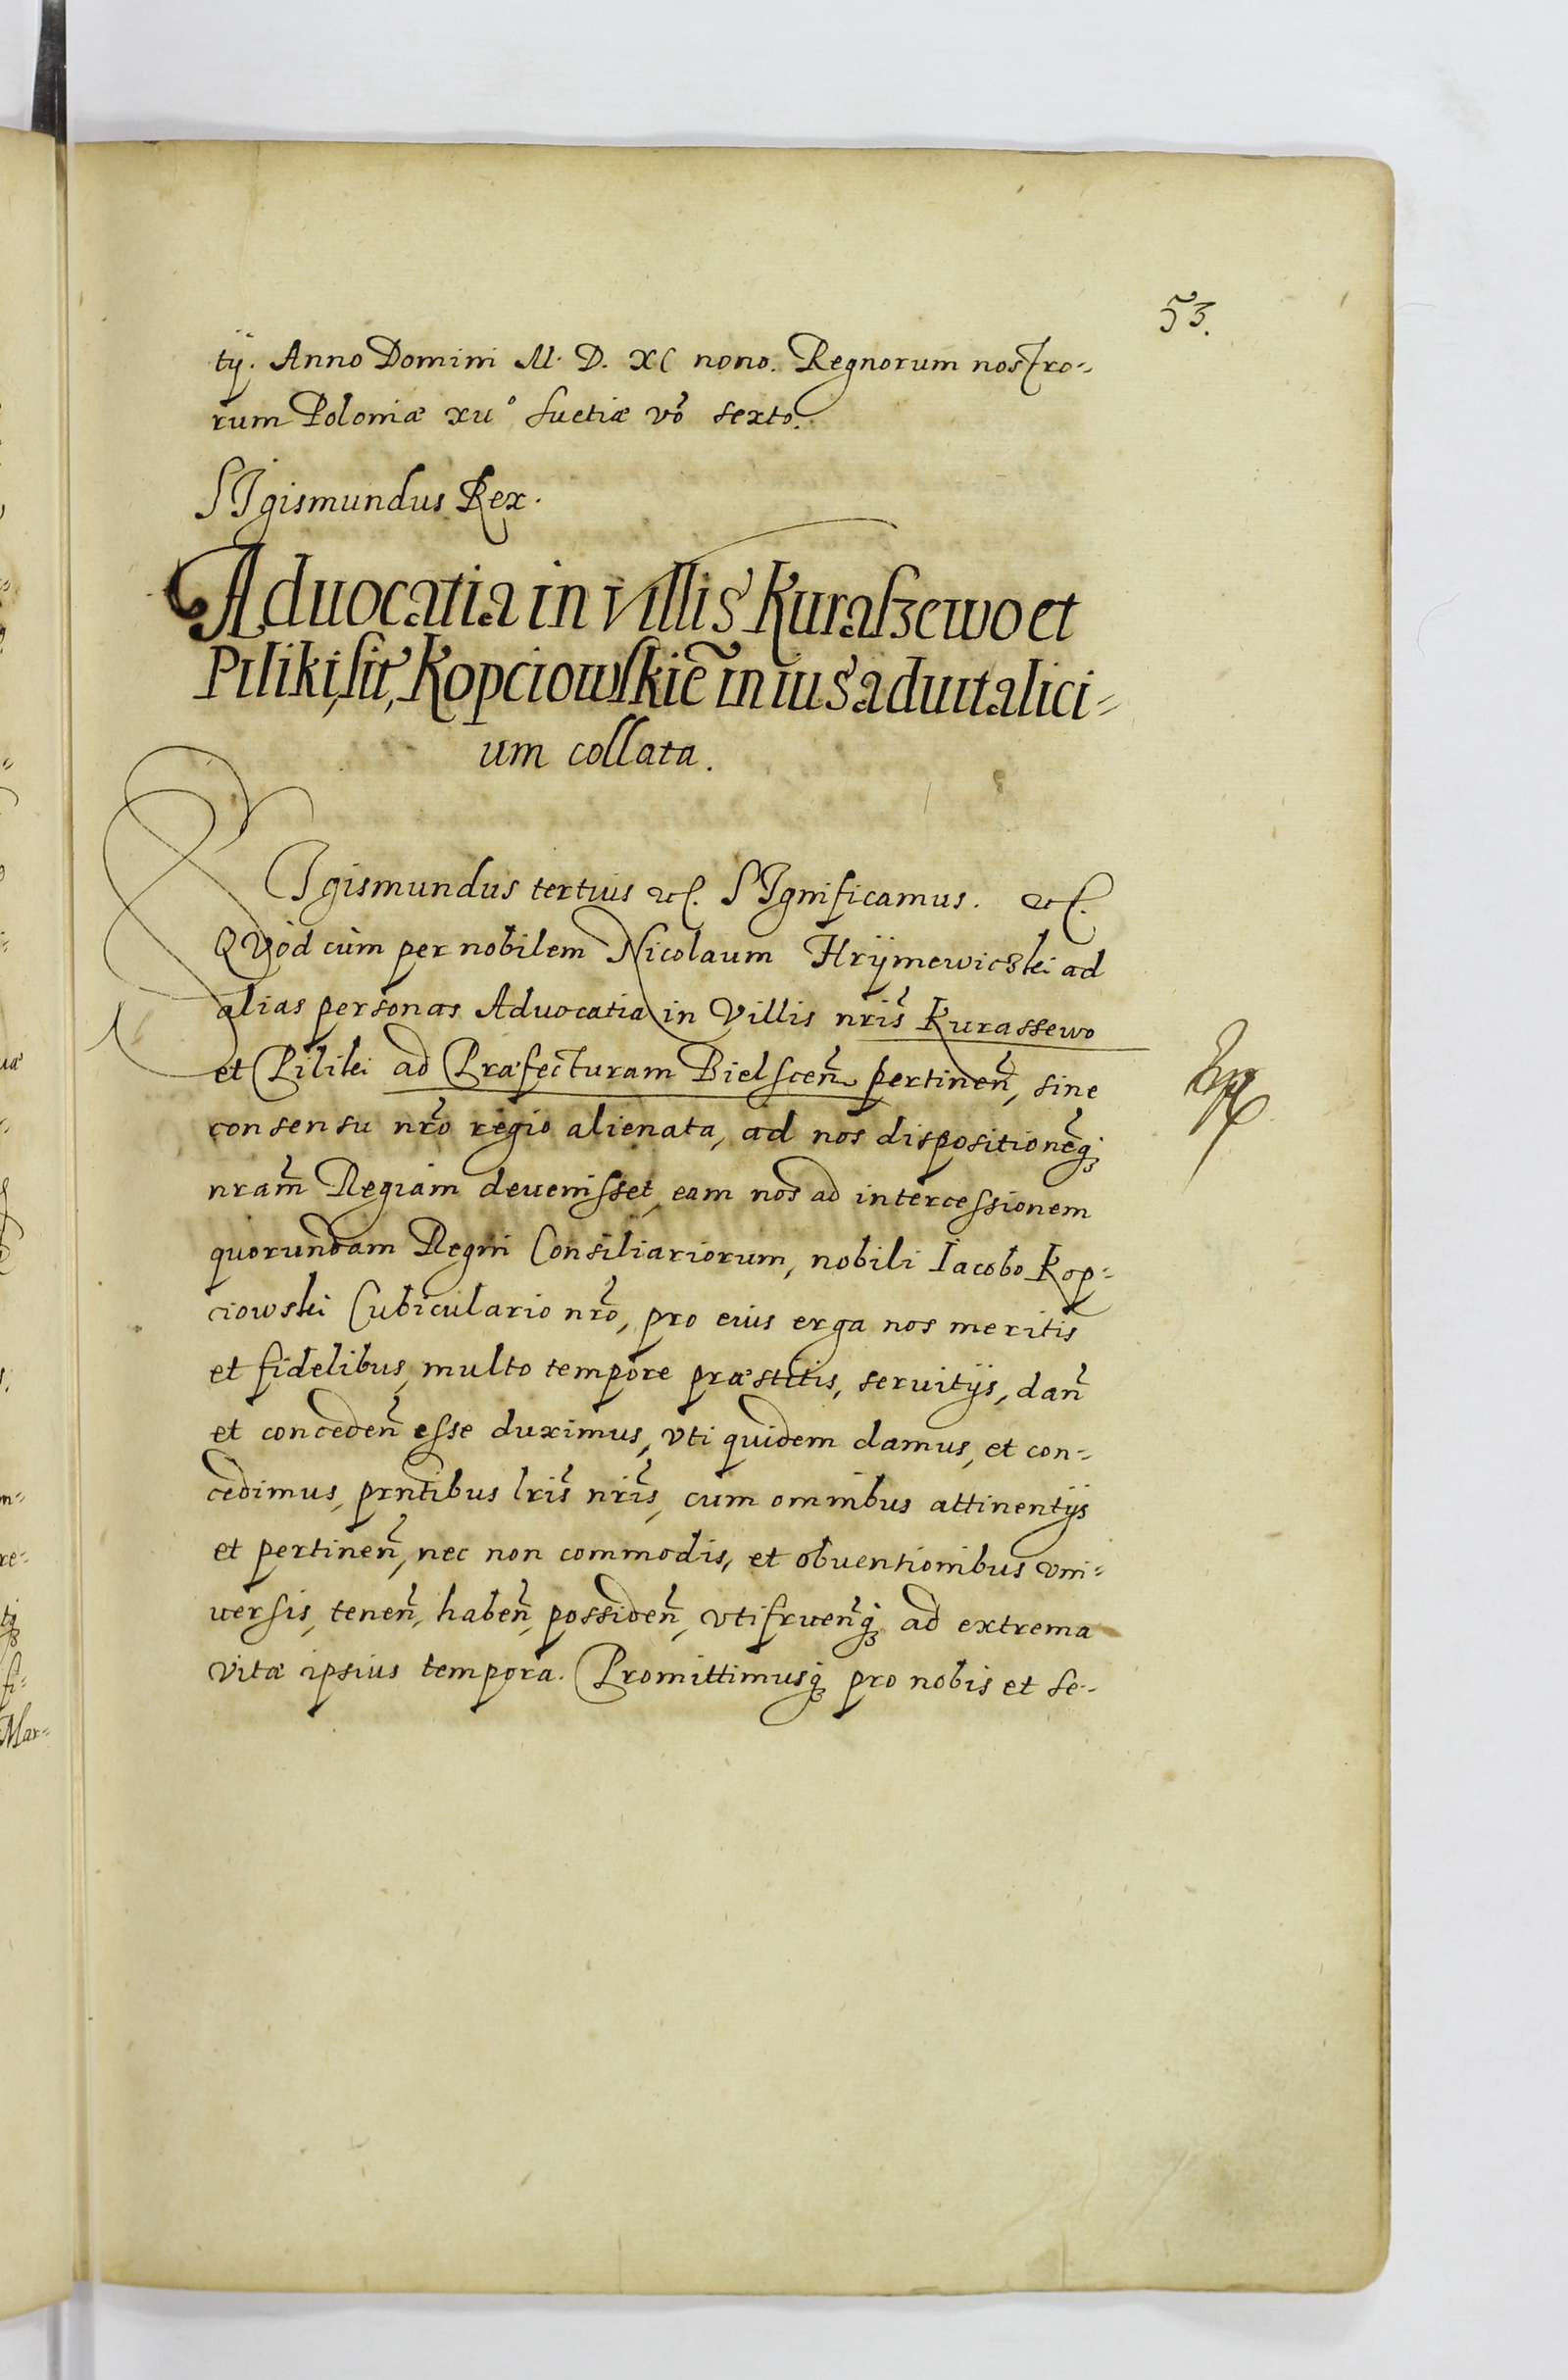 53.
tÿ. Anno Domini M. D. XC nono. Regnorum nostro-
rum Poloniæ xii° Suetiæ vo sexto.
SIgismundus Rex.
Aduocatia in villis Kuraszewo et
Piliki, sit, Kopciowskie in ius aduitalici-
um collata.
SIgismundus tertius etc. SIgnificamus. etc.
QVòd cùm per nobilem Nicolaum ad
alias personas Aduocatia in Villis nris Kurassewo
et Piliki ad Præfecturam Bielscen pertinen, sine
consensu nro regio alienata, ad nos dispositioneq;
nram Regiam deuenisset, eam nos ad intercessionem
quorundam Regni Consiliariorum, nobili Iacobo Kop-
ciowski Cubiculario nro, pro eius erga nos meritis
et fidelibus, multo tempore præstitis, seruitÿs, dan
et conceden esse duximus, vti quidem damus, et con-
cedimus, prntibus lris nris, cum omnibus attinentÿs
et pertinen, nec non commodis, et obuentionibus vni-
uersis, tenen, haben, possiden, vtifruenq; ad extrema
vitæ ipsius tempora. Promittimusq; pro nobis et se-